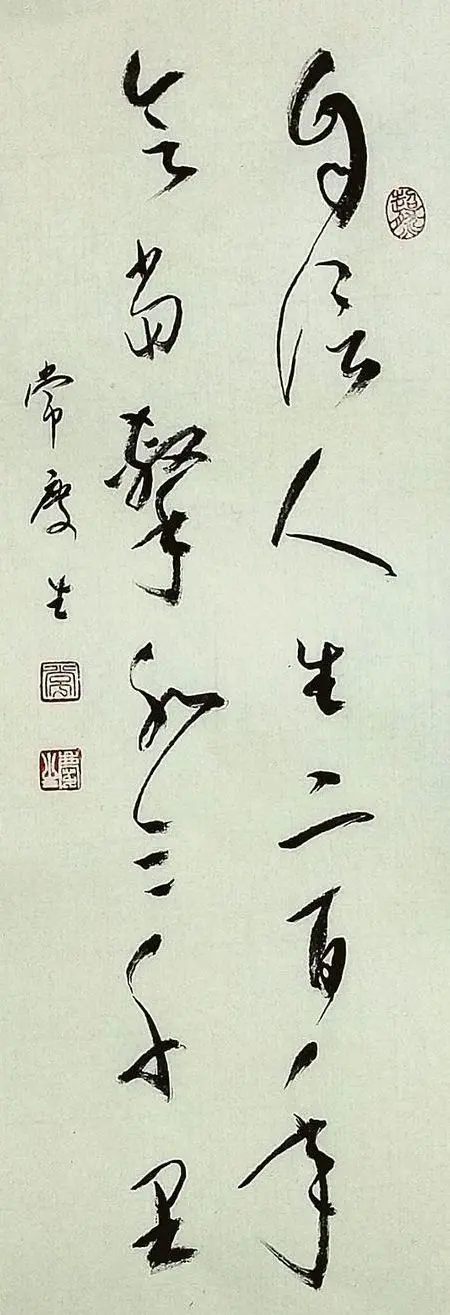 自信人生二百年
会當擊水三千里
常慶生